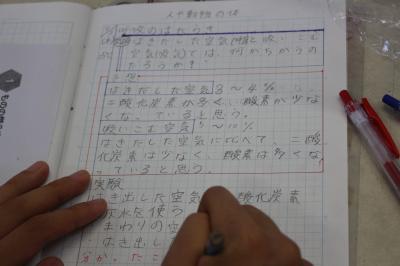 人や動物の体
呼吸のはたらき
はきだした空気(呼気)と吸いこむ
空気(吸気)では、何がちがうの
だろうか?
予想
はきだした空気 3〜4%
二酸化炭素が多く、酸素が少な
くなっていると思う。
吸いこむ空気
はきだした空気に比べて、二酸
化炭素は少なく、酸素は多くな
っていると思う。
実験
はき出した空気 酸化炭素
灰水を使う
まわりの空
はき出し
分か